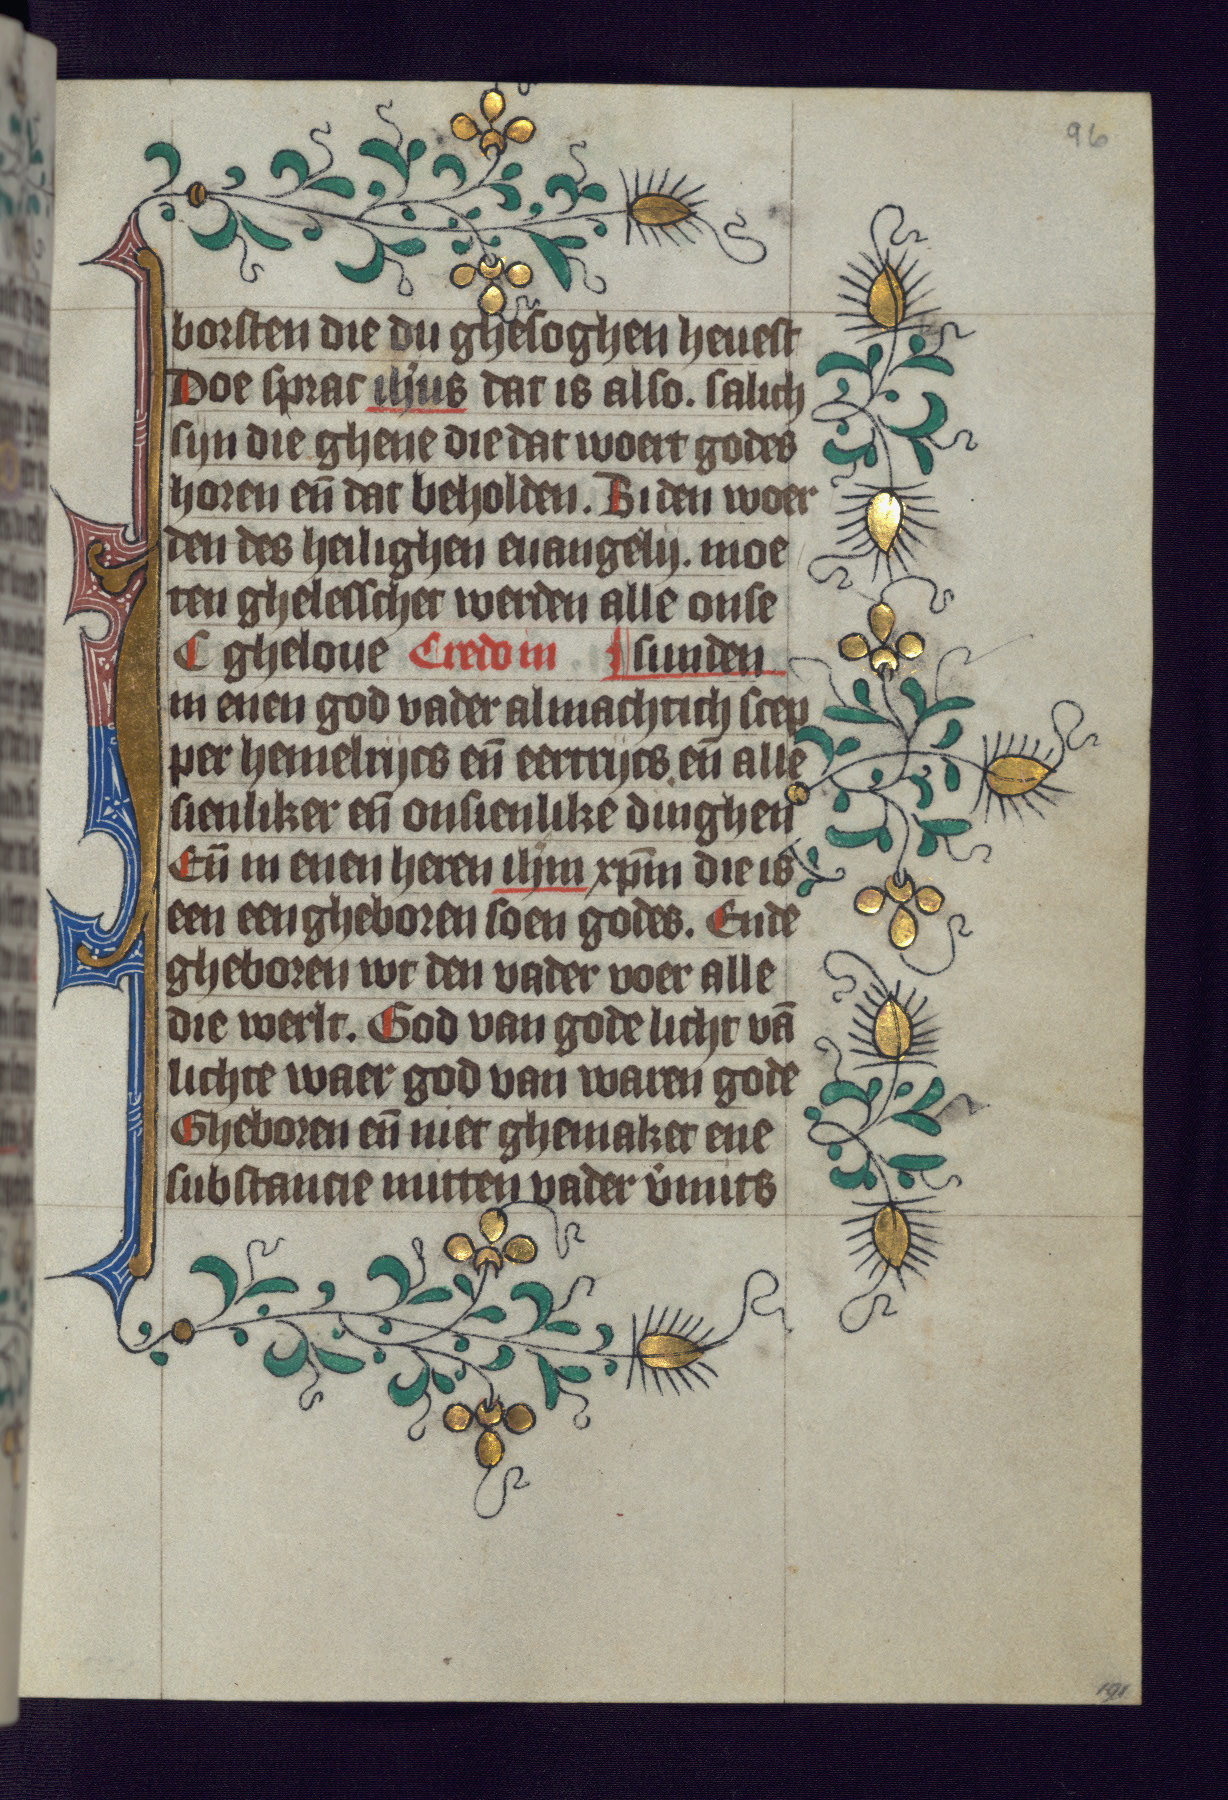 96
borsten die du ghesoghen heuest
Doe sprac ih̄us dat is also. salich
syn die ghene die dat woert godes
horen en̄ dat beholden. Bi den woer
den des heilighen euangelij. moe
ten ghelesschet werden alle onse
C gheloue Credo in sunden
in enen god vader almachtich scep
per hemelrijcs en̄ eertrijcs en̄ alle
sienliker en̄ onsienlike dinghen
En̄ in enen heren ih̄m xp̄m die is
een eengheboren soen godes. Ende
gheboren wt den vader voer alle
die werlt. God van gode licht vā
lichte waer god van waren gode
Gheboren en̄ niet ghemaket ene
substancie mitten vader v̄mits